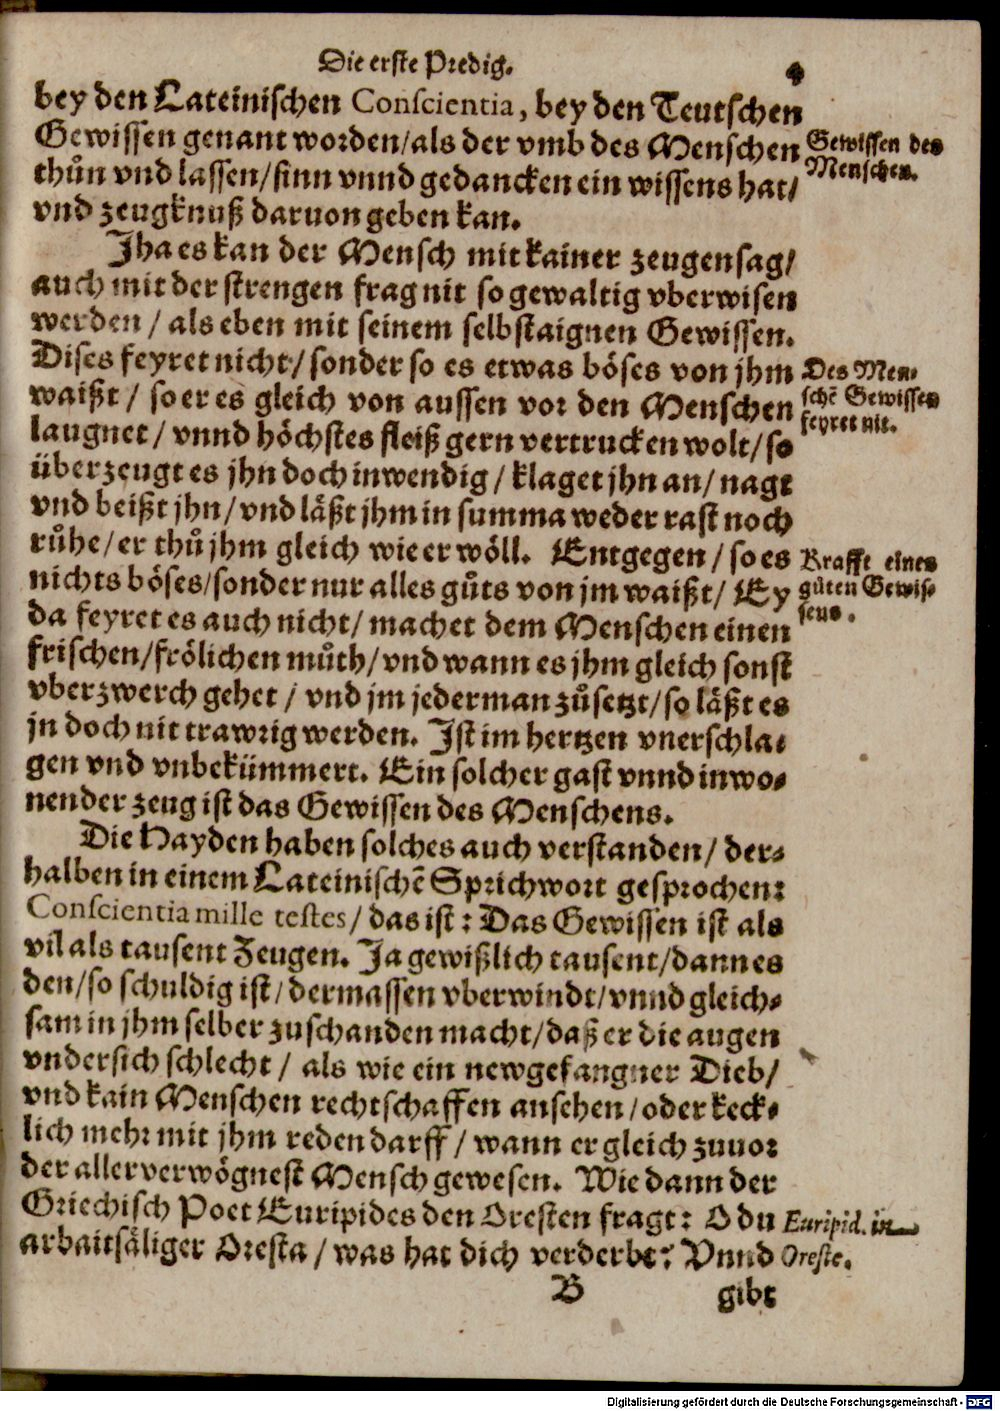 Die erste Predig.
4
bey den Lateinischen Conscientia, bey den Teutschen
Gewissen genant worden/als der vmb des Menschen
thůn vnd lassen/sinn vnnd gedancken ein wissens hat/
vnd zeugknuß daruon geben kan.
Gewissen des
Menschen.
Jha es kan der Mensch mit kainer zeugensag/
auch mit der strengen frag nit so gewaltig vberwisen
werden / als eben mit seinem selbstaignen Gewissen.
Dises feyret nicht/sonder so es etwas böses von jhm
waißt / so er es gleich von aussen vor den Menschen
laugnet / vnnd höchstes fleiß gern vertrucken wolt/so
überzeugt es jhn doch inwendig / klaget jhn an/ nagt
vnd beißt jhn/vnd läßt jhm in summa weder rast noch
růhe/er thů jhm gleich wie er wöll. Entgegen / so es
nichts böses/sonder nur alles gůts von jm waißt/ Ey
da feyret es auch nicht/ machet dem Menschen einen
frischen/frölichen můth/vnd wann es jhm gleich sonst
vberzwerch gehet / vnd jm jederman zůsetzt/so läßt es
jn doch nit trawrig werden. Jst im hertzen vnerschla-
gen vnd vnbekümmert. Ein solcher gast vnnd inwo-
nender zeug ist das Gewissen des Menschens.
Des Men-
schẽ Gewissen
feyret nit.
Krafft eines
gůten Gewis-
sens.
Die Hayden haben solches auch verstanden/ der-
halben in einem Lateinischẽ Sprichwort gesprochen:
Conscientia mille testes/ das ist: Das Gewissen ist als
vil als tausent Zeugen. Ja gewißlich tausent/dann es
den/so schuldig ist/dermassen vberwindt/vnnd gleich-
sam in jhm selber zuschanden macht/daß er die augen
vndersich schlecht / als wie ein newgefangner Dieb/
vnd kain Menschen rechtschaffen ansehen/oder keck-
lich mehr mit jhm reden darff / wann er gleich zuuor
der allerverwögnest Mensch gewesen. Wie dann der
Griechisch Poet Euripides den Oresten fragt: O du
arbaitsäliger Oresta / was hat dich verderbt? Vnnd
Euripid. in
Oreste.
B
gibt
Digitalisierung gefördert durch die Deutsche Forschungsgemeinschaft - DFG